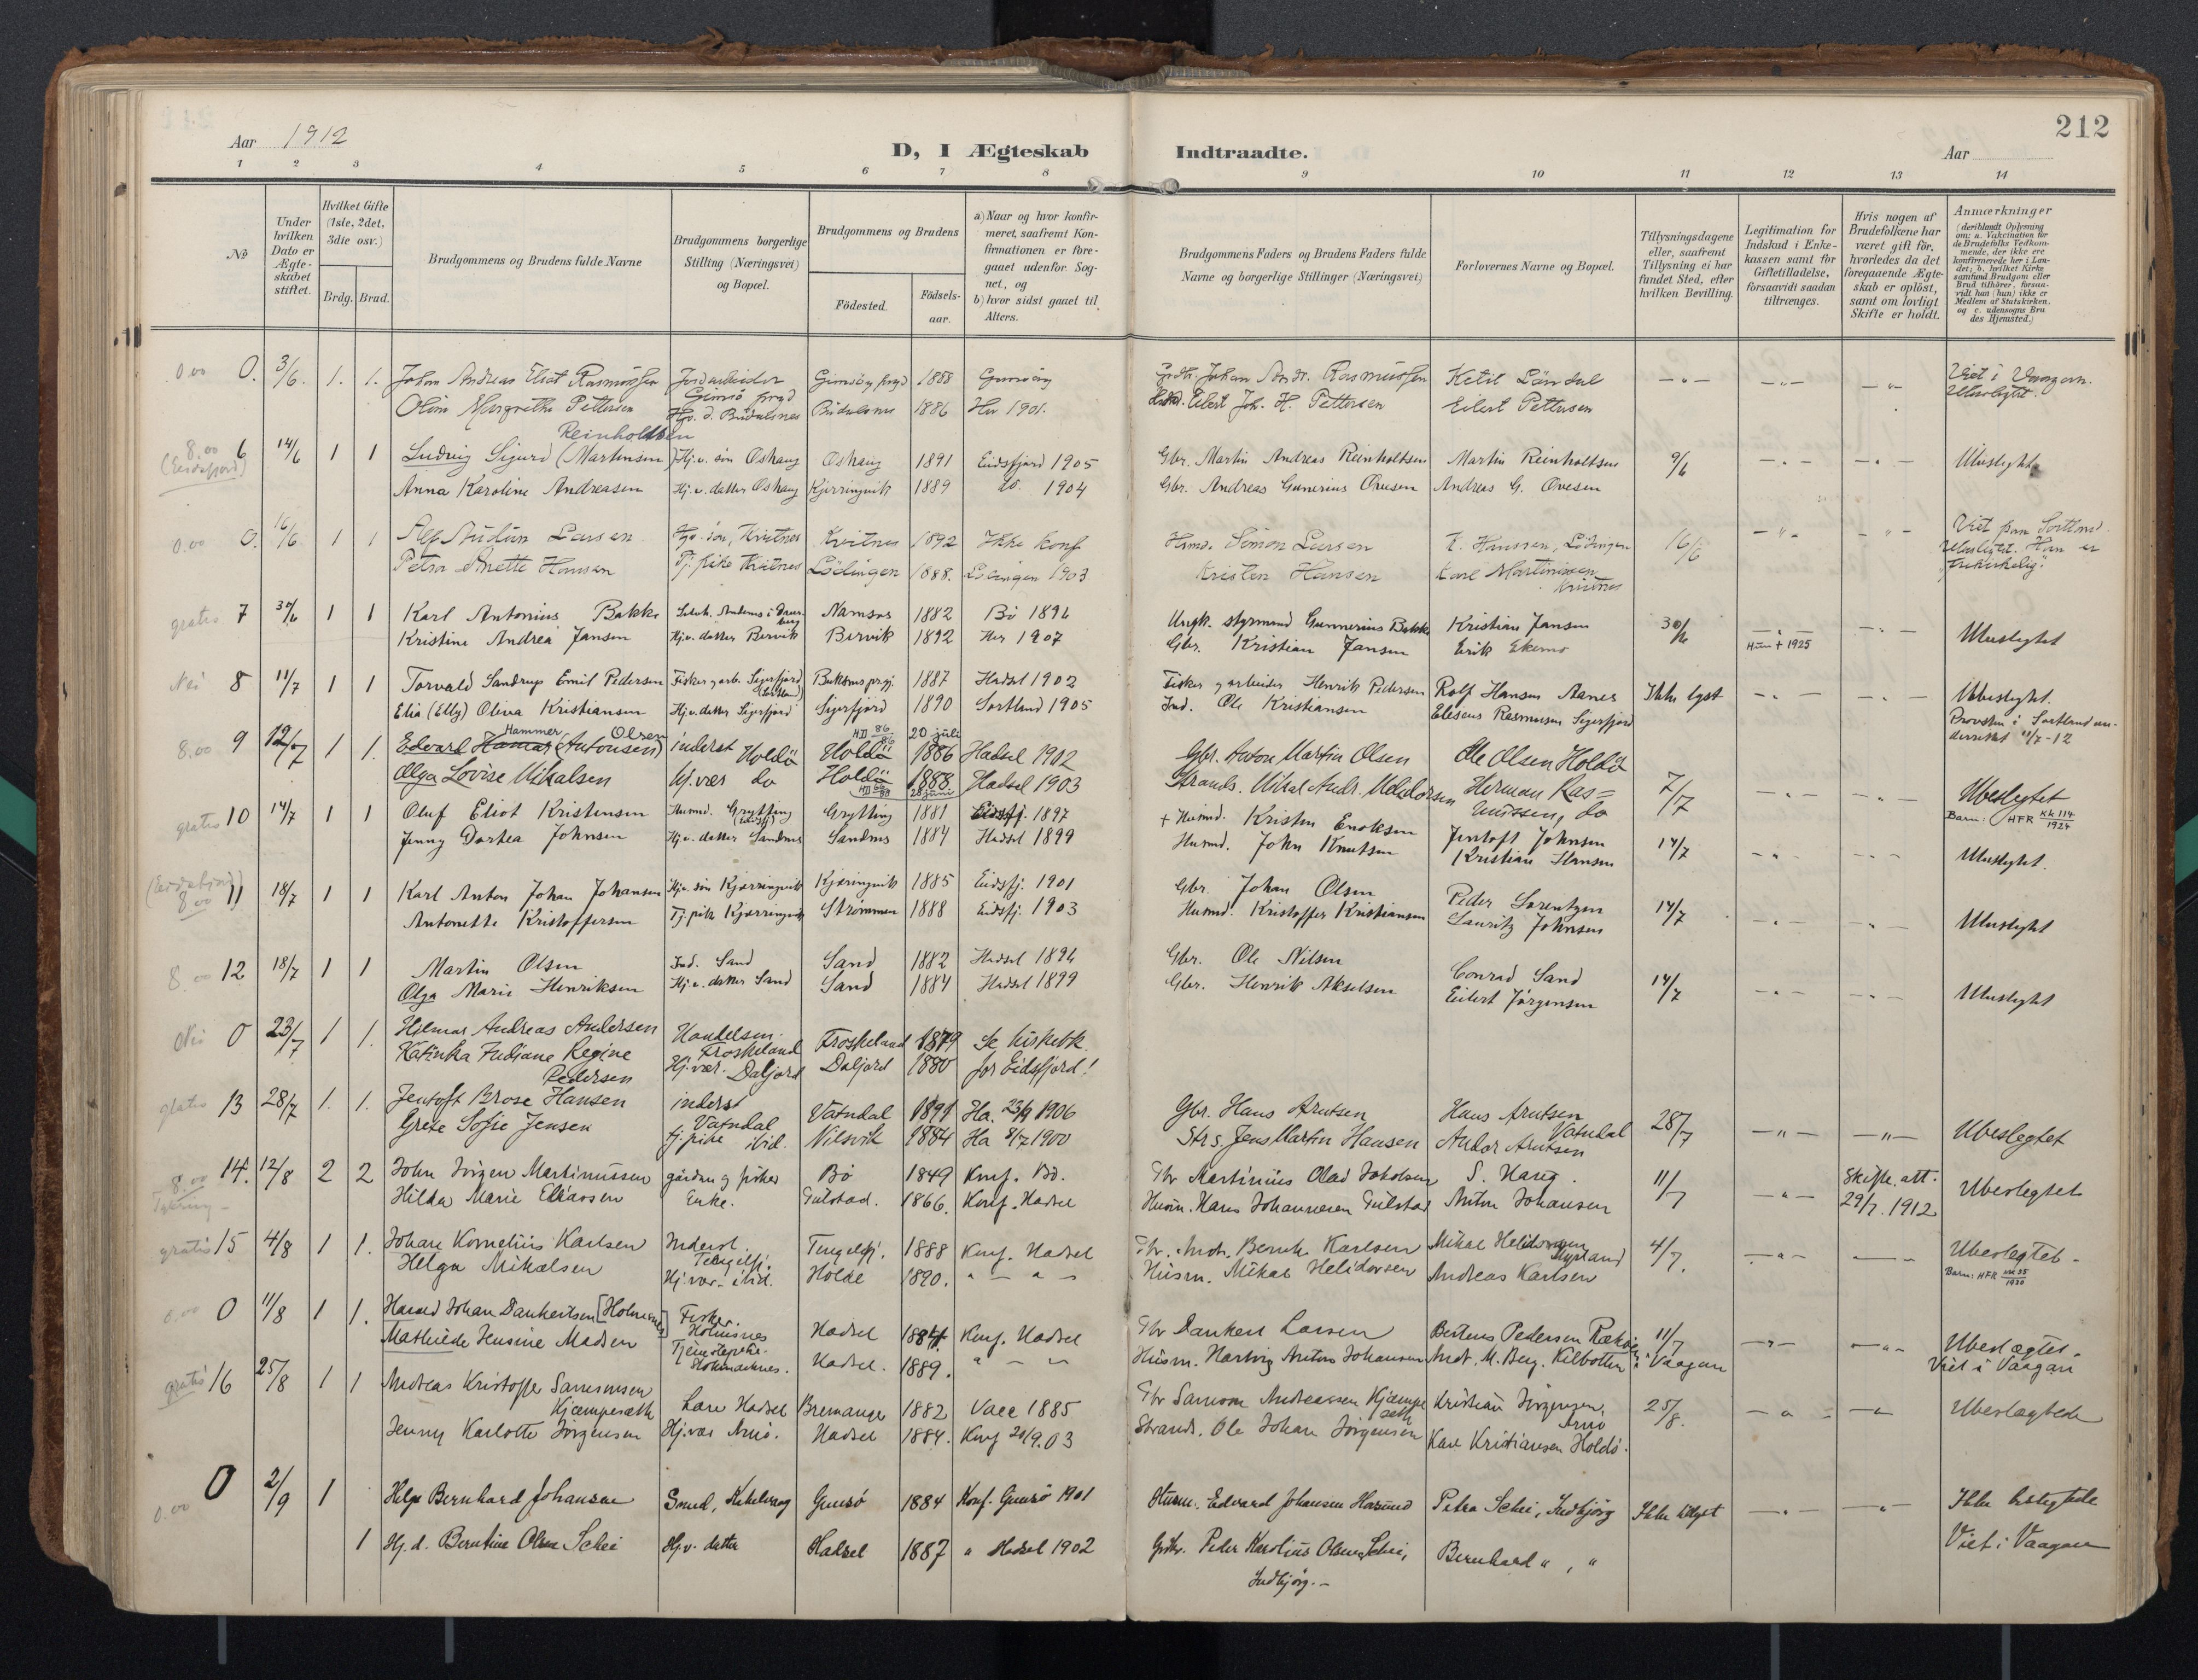 212
Aar 1912
D, I Ægteskab Indtraadte.
Aar
1 2 3 4 5 6 7 8 9 10 11 12 13 14
№
Under hvilken Dato er Ægteskabet stiftet.
Hvilket Gifte (1ste, 2det, 3die osv.)
Brdg. Brud.
Brudgommens og Brudens fulde Navne
Brudgommens borgerlige Stilling (Næringsvei) og Bopæl.
Brudgommens og Brudens
Födested.
Födsels-aar.
a) Naar og hvor konfirmeret, saafremt Konfirmationen er foregaaet udenfor Sognet, og
b) hvor sidst gaaet til Alters.
Brudgommens Faders og Brudens Faders fulde Navne og borgerlige Stillinger (Næringsvei)
Forlovernes Navne og Bopæl.
Tillysningsdagene eller, saafremt Tillysning ei har fundet Sted, efter hvilken Bevilling.
Legitimation for Indskud i Enkekassen samt for Giftetilladelse, forsaavidt saadan tiltrænges.
Hvis nogen af Brudefolkene har været gift för, hvorledes da det foregaaende Ægteskab er oplöst, samt om lovligt Skifte er holdt.
Anmærkninger (deriblandt Oplysning om: a. Vakcination for de Brudefolks Vedkommende, der ikke ere konfirmerede her i Landet; b. hvilket Kirkesamfund Brudgom eller Brud tilhörer, forsaavidt han (hun) ikke er Medlem af Statskirken, og c. udensogns Brudes Hjemsted.)
0.00 0. 3/6. 1. 1. Johan Andreas Eliot Rasmussen Jordarbeider Gimsö prgd Gimsöy prgd 1888 Gimsöy Johan Andr. Rasmussen Ketil Lândal Viet i Vaagan.
Oline Margrethe Pettersen Hjv. d. Budalsnes 1886 Her 1901. Eilert Joh. H. Pettersen Eilert Pettersen Ubeslegtet.
Reinholdtsen
8.00 (Eidsfjord) 6 14/6 1 1 Ludvig Sigurd (Martinsen) Hj.v. søn Oshaug Oshaug 1891 Eidsfjord 1905 Gbr. Martin Andreas Reinholtsen Martin Reinholtsen 9/6 Ubeslegtet
Anna Karoline Andreasen Hj.v. datter Oshaug Kjerringvik 1889 do. 1904 Gbr. Andreas Gunerius Ovesen Andreas G. Ovesen
0.00 0. 16/6 1 1 Alf Audun Larsen Hjv. søn, Kvitnes Kvitnes 1892 Ikke konf Husmd. Simon Larsen K. Hanssen, Lödingen 16/6 Viet paa Sortland
Petra Anette Hansen Tj. pike Kvitnes Lödingen 1888. Lödingen 1903 Kristen Hansen Karl Martinissen Kvitnes Ubeslegtet. Han er frikirkelig.
gratis 7 30/6 1 1 Karl Antonius Bakke Namsos 1882 Bö 1896 Ungk. styrmand Gunnerius Bakke Kristian Jansen 30/6 Ubeslegtet
Kristine Andrea Jansen Hj.v. datter Bervik Bervik 1892 Her 1907 Gbr. Kristian Jansen Erik Ekemo Hun + 1925
Nei 8 11/7 1 1 Torvald Sandrup Emil Pedersen Fisker g arb. Sigerfjord (Sortland) Buksnes prgj. 1887 Hadsel 1902 Fisker g arbeider Henrik Pedersen Rolf Hansen Aanes Ikke lyst Ubeslegtet.
Elia (Elly) Oliva Kristiansen Hj.v. datter Sigerfjord Sigerfjord 1890 Sortland 1905 Ind. Ole Kristiansen Eliseus Rasmusen Sigerfjord Provsten i Sortland underrettet 11/7-12
8.00 9 12/7 1 1. Edvard Hammer Olsen (Antonsen) inderst Holdö Holdö 20 juli 1886 Hadsel 1902 Gbr. Anton Martin Olsen Ole Olsen Holdö 7/7 Ubeslegtet
Olga Lovise Mikalsen hj.vær do Holdö 1888 28 juni Hadsel 1903 Strands. Mikal Andr. Helidorsen Herman Rasmussen, do Barn: HFR KK 114 1924
gratis 10 14/7 1 1 Oluf Eliot Kristensen Husmd. Grytting Grytting 1881 Eidsfj. 1897 + Husmd. Kristen Enoksen Jentoft Johnsen 14/7 Ubeslegtet.
Jenny Dortea Johnsen Hj.v. datter Sandnes Sandnes 1884 Hadsel 1899 Husmd. John Knutsen Kristian Hansen
(Eidsfjord) 8.00 11 18/7 1 1 Karl Anton Johan Johansen Hj.v. søn Kjærringvik Kjæringvik 1885 Eidsfj. 1901 Gbr. Johan Olsen Peder Lorentzen 14/7 Ubeslegtet
Antonette Kristoffersen Tj. pike Kjærringvik Strømmen 1888 Eidsfj. 1903 Husmd. Kristoffer Kristiansen Lauritz Johnsen
8.00 12 18/7 1 1 Martin Olsen Ind. Sand Sand 1882 Hadsel 1896 Gbr. Ole Nilsen Conrad Sand 14/7 Ubeslegtet
Olga Marie Henriksen Hj.v. datter Sand Sand 1884 Hadsel 1899 Gbr. Henrik Akselsen Eilert Jørgensen
Nei 0 23/7 1 1. Hilmar Andreas Andersen Handelsm. Froskeland Froskeland 1879 Se kirkebk.
Katinka Juliane Regine Pedersen Hj.vær. Daljord Daljord 1880 for Eidsfjord!
gratis 13 28/7 1. 1. Jentoft Brose Hansen inderst Vatndal Vatndal 1891 Ha. 23/9 1906 Gbr. Hans Arntsen Hans Arntsen Vatndal 28/7 Ubeslegtet
Grete Sofie Jensen tj. pike ibid. Nilsvik 1884 Ha 8/7 1900 Strs. Jens Martin Hansen Andor Arntsen
8.00 14. 12/8 2 2 John Jörgen Martinussen gårdm g fisker Bö 1849 Konf. Bö. Gbr Martinius Olad Jakobsen S. Haug. 11/7 Skifte att. 29/7. 1912 Ubeslegtet
Hilda Marie Eliassen Enke. Gulstad. 1866. Konf. Hadsel Husm. Hans Johannesen Gulstad Anton Johansen
gratis 15 4/8 1 1. Johan Kornelius Karlsen Inderst Tengelfj. Tengelfj. 1888 Konf. Hadsel Gbr. Andr. Bernh. Karlsen Mikal Helidorsen Myrland 4/7. Ubeslegtet -
Helga Mikalsen Hj.vær. ibid. Holdö 1890. Husm. Mikal Helidorsen Andreas Karlsen Barn: HFR KK 35 1920
0.00 0 11/8 1 1. Harald Johan Dankertsen [Holmsnes] Fisker. Holmsnes Hadsel 1884. Konf. Hadsel Gbr Dankert Larsen Berteus Pedersen Rækö 11/7 i Vaagan Ubeslægtet.
Mathilde Jensine Madsen Tjenestepike. Stokmarknes. Hadsel. 1889. Husm. Hartvig Anton Johansen Andr. M. Berg. Kilbotten Viet i Vaagan
gratis 16 25/8 1 1 Andreas Kristoffer Samsonsen Kjæmpesæth Lær Hadsel Bremanger 1882 Vacc 1885 Gbr Samson Andreassen Kjæmpeseth Kristian Jörgensen, Arnö 25/8. Ubeslægtede
Jenny Karlotte Jörgensen Hj.vær Arnö. Hadsel 1884. Konf 20/9.03 Strands. Ole Johan Jörgensen Karl Kristiansen Holdö.
0.00 0 2/9 1 Helge Bernhard Johansen Smed, Kabelvaag Gimsö 1884 Konf. Gimsö 1901 Husm. Edvard Johansen Harsund Petra Schei, Indbjörg Ikke tillyst Ikke beslegtede
1 Hj. d. Berntine Olsen Schei Hj.v. datter Hadsel 1887 " Hadsel 1902 Gbr. Peder Karolius Olsen Schei, Indbjörg. - Bernhard " , " Viet i Vaagan